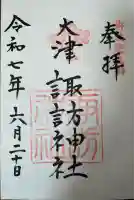 奉拝
大津 諏訪神社
令和七年 六月二十日